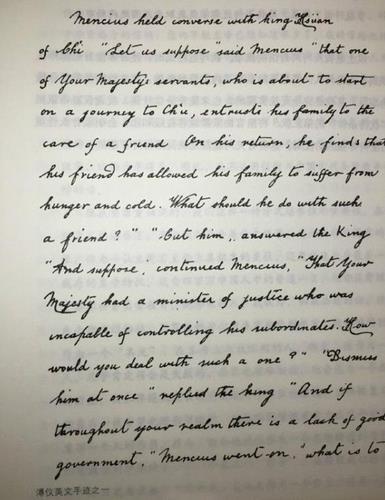 Mencius held converse with king Hsüan
of Chi "Let us suppose" said Mencius "that one
of Your Majestys servants, who is about to start
on a journey to Ch'u, entrusts his family to the
care of a friend On his return, he finds that
his friend has allowed his family to suffer from
hunger and cold. What should he do with such
a friend?" "Cut him, answered the King
"And suppose", continued Mencius, "That Your
Majesty had a minister of justice who was
incapable of controlling his subordinates. How
would you deal with such a one?" "Dismiss
him at once" replied the king "And if
throughout your realm there is a lack of good
government," Mencius went on, "what is to
溥仪英文手迹之一